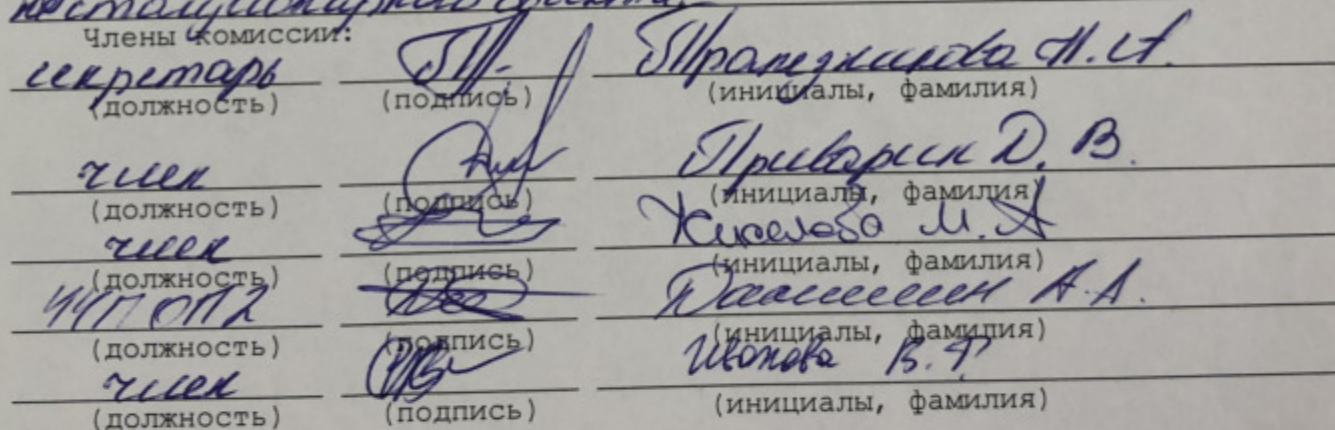 нестационарного объекта.
Члены комиссии:
секретарь Н.А.
(должность) (подпись) (инициалы, фамилия)
член Приварин Д. В.
(должность) (подпись) (инициалы, фамилия)
член М. А
(должность) (подпись) (инициалы, фамилия)
А.А.
(должность) (подпись) (инициалы, фамилия)
член Иванова В.Ф
(должность) (подпись) (инициалы, фамилия)